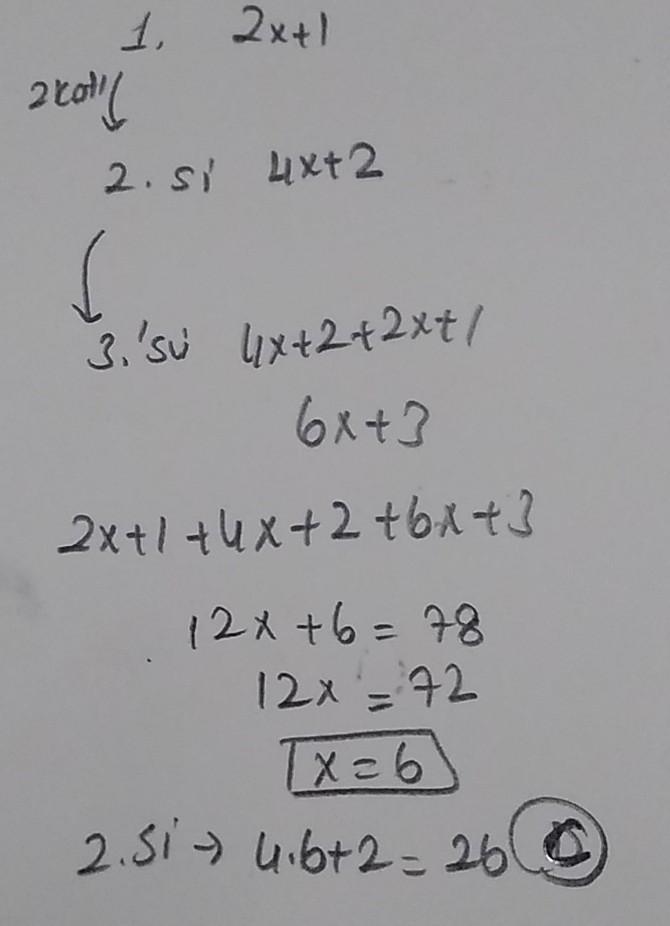 1. 2x+1
2 katı
2. si 4x+2
3.'sü 4x+2+2x+1
6x+3
2x+1+4x+2+6x+3
12x+6=78
12x=72
x=6
2.si→ 4.6+2=26 C